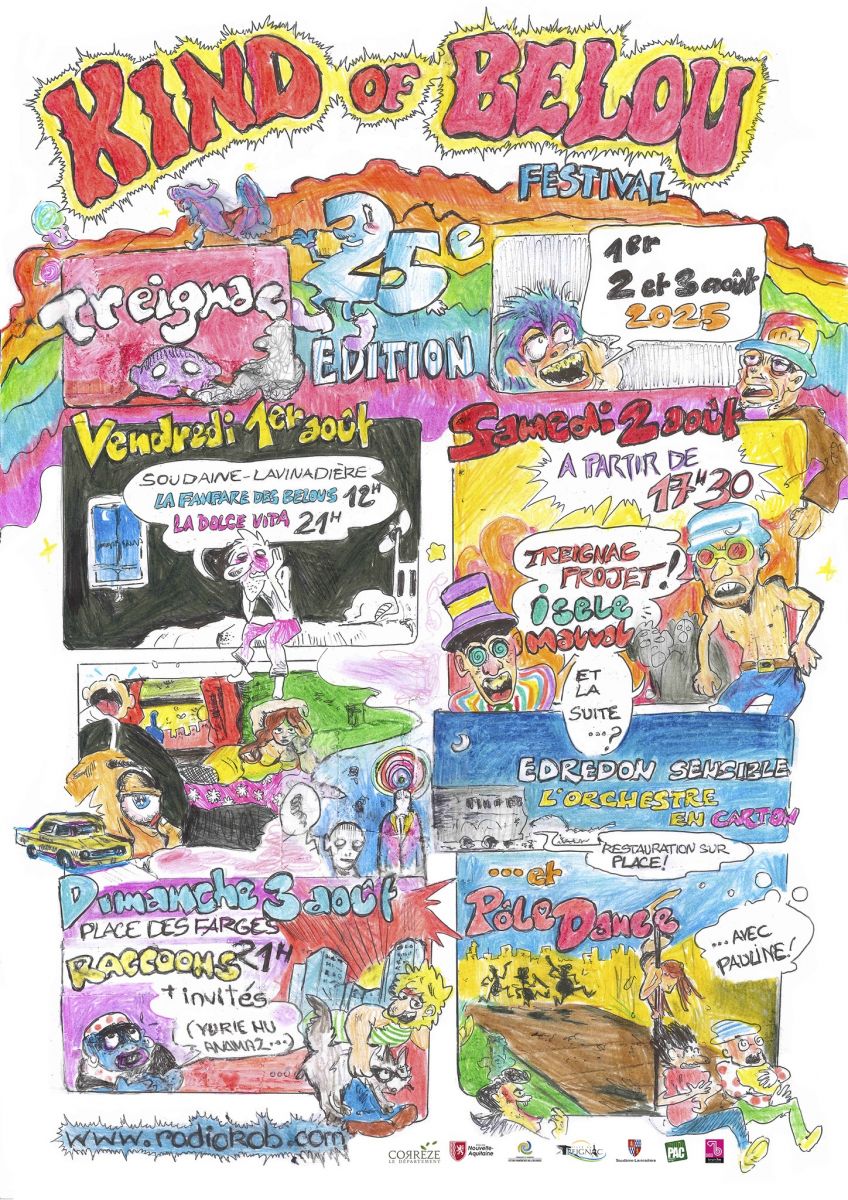 KIND OF BELOU
FESTIVAL
25e
EDITION
Treignac
1er
2 et 3 août
2025
Vendredi 1er août
SOUDAINE-LAVINADIÈRE
LA FANFARE DES BELOUS 12H
LA DOLCE VITA 21H
Samedi 2 août
A PARTIR DE
17H30
TREIGNAC
PROJET!
ET
LA
SUITE
...?
EDREDON SENSIBLE
L'ORCHESTRE
EN CARTON
RESTAURATION SUR
PLACE!
Dimanche 3 août
PLACE DES FARGES
RACCOONS 21H
+ invités
...et
Pôle Dance
...AVEC
PAULINE!
www.radiokob.com
CORRÈZE
LE DÉPARTEMENT
Nouvelle-
Aquitaine
TREIGNAC
Soudaine-Lavinadière
PAC